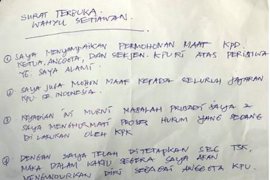 SURAT TERBUKA
WAHYU SETIAWAN
① SAYA MENYAMPAIKAN PERMOHONAN MAAF KPD
KETUA, ANGGOTA, DAN SEKJEN KPU RI ATAS PERISTIWA
YG. SAYA ALAMI.
② SAYA JUGA MOHON MAAF KEPADA SELURUH JAJARAN
KPU SE INDONESIA.
③ KEJADIAN INI MURNI MASALAH PRIBADI SAYA &
SAYA MENGHORMATI PROSES HUKUM YANG SEDANG
DI LAKUKAN OLEH KPK
④ DENGAN SAYA TELAH DITETAPKAN SBG TSK,
MAKA DALAM WAKTU SEGERA SAYA AKAN
MENGUNDURKAN DIRI SEBAGAI ANGGOTA KPU.